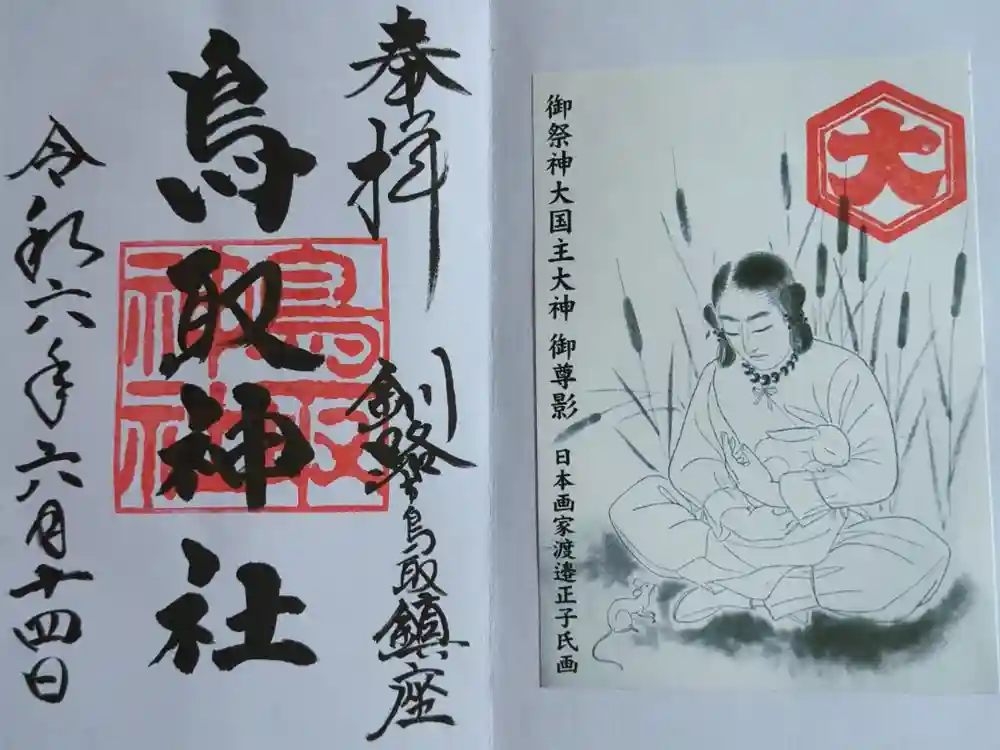 奉拝
釧路鳥取鎮座
鳥取神社
鳥取
神社
令和六年六月十四日
大
御祭神大国主大神 御尊影 日本画家渡邉正子氏画